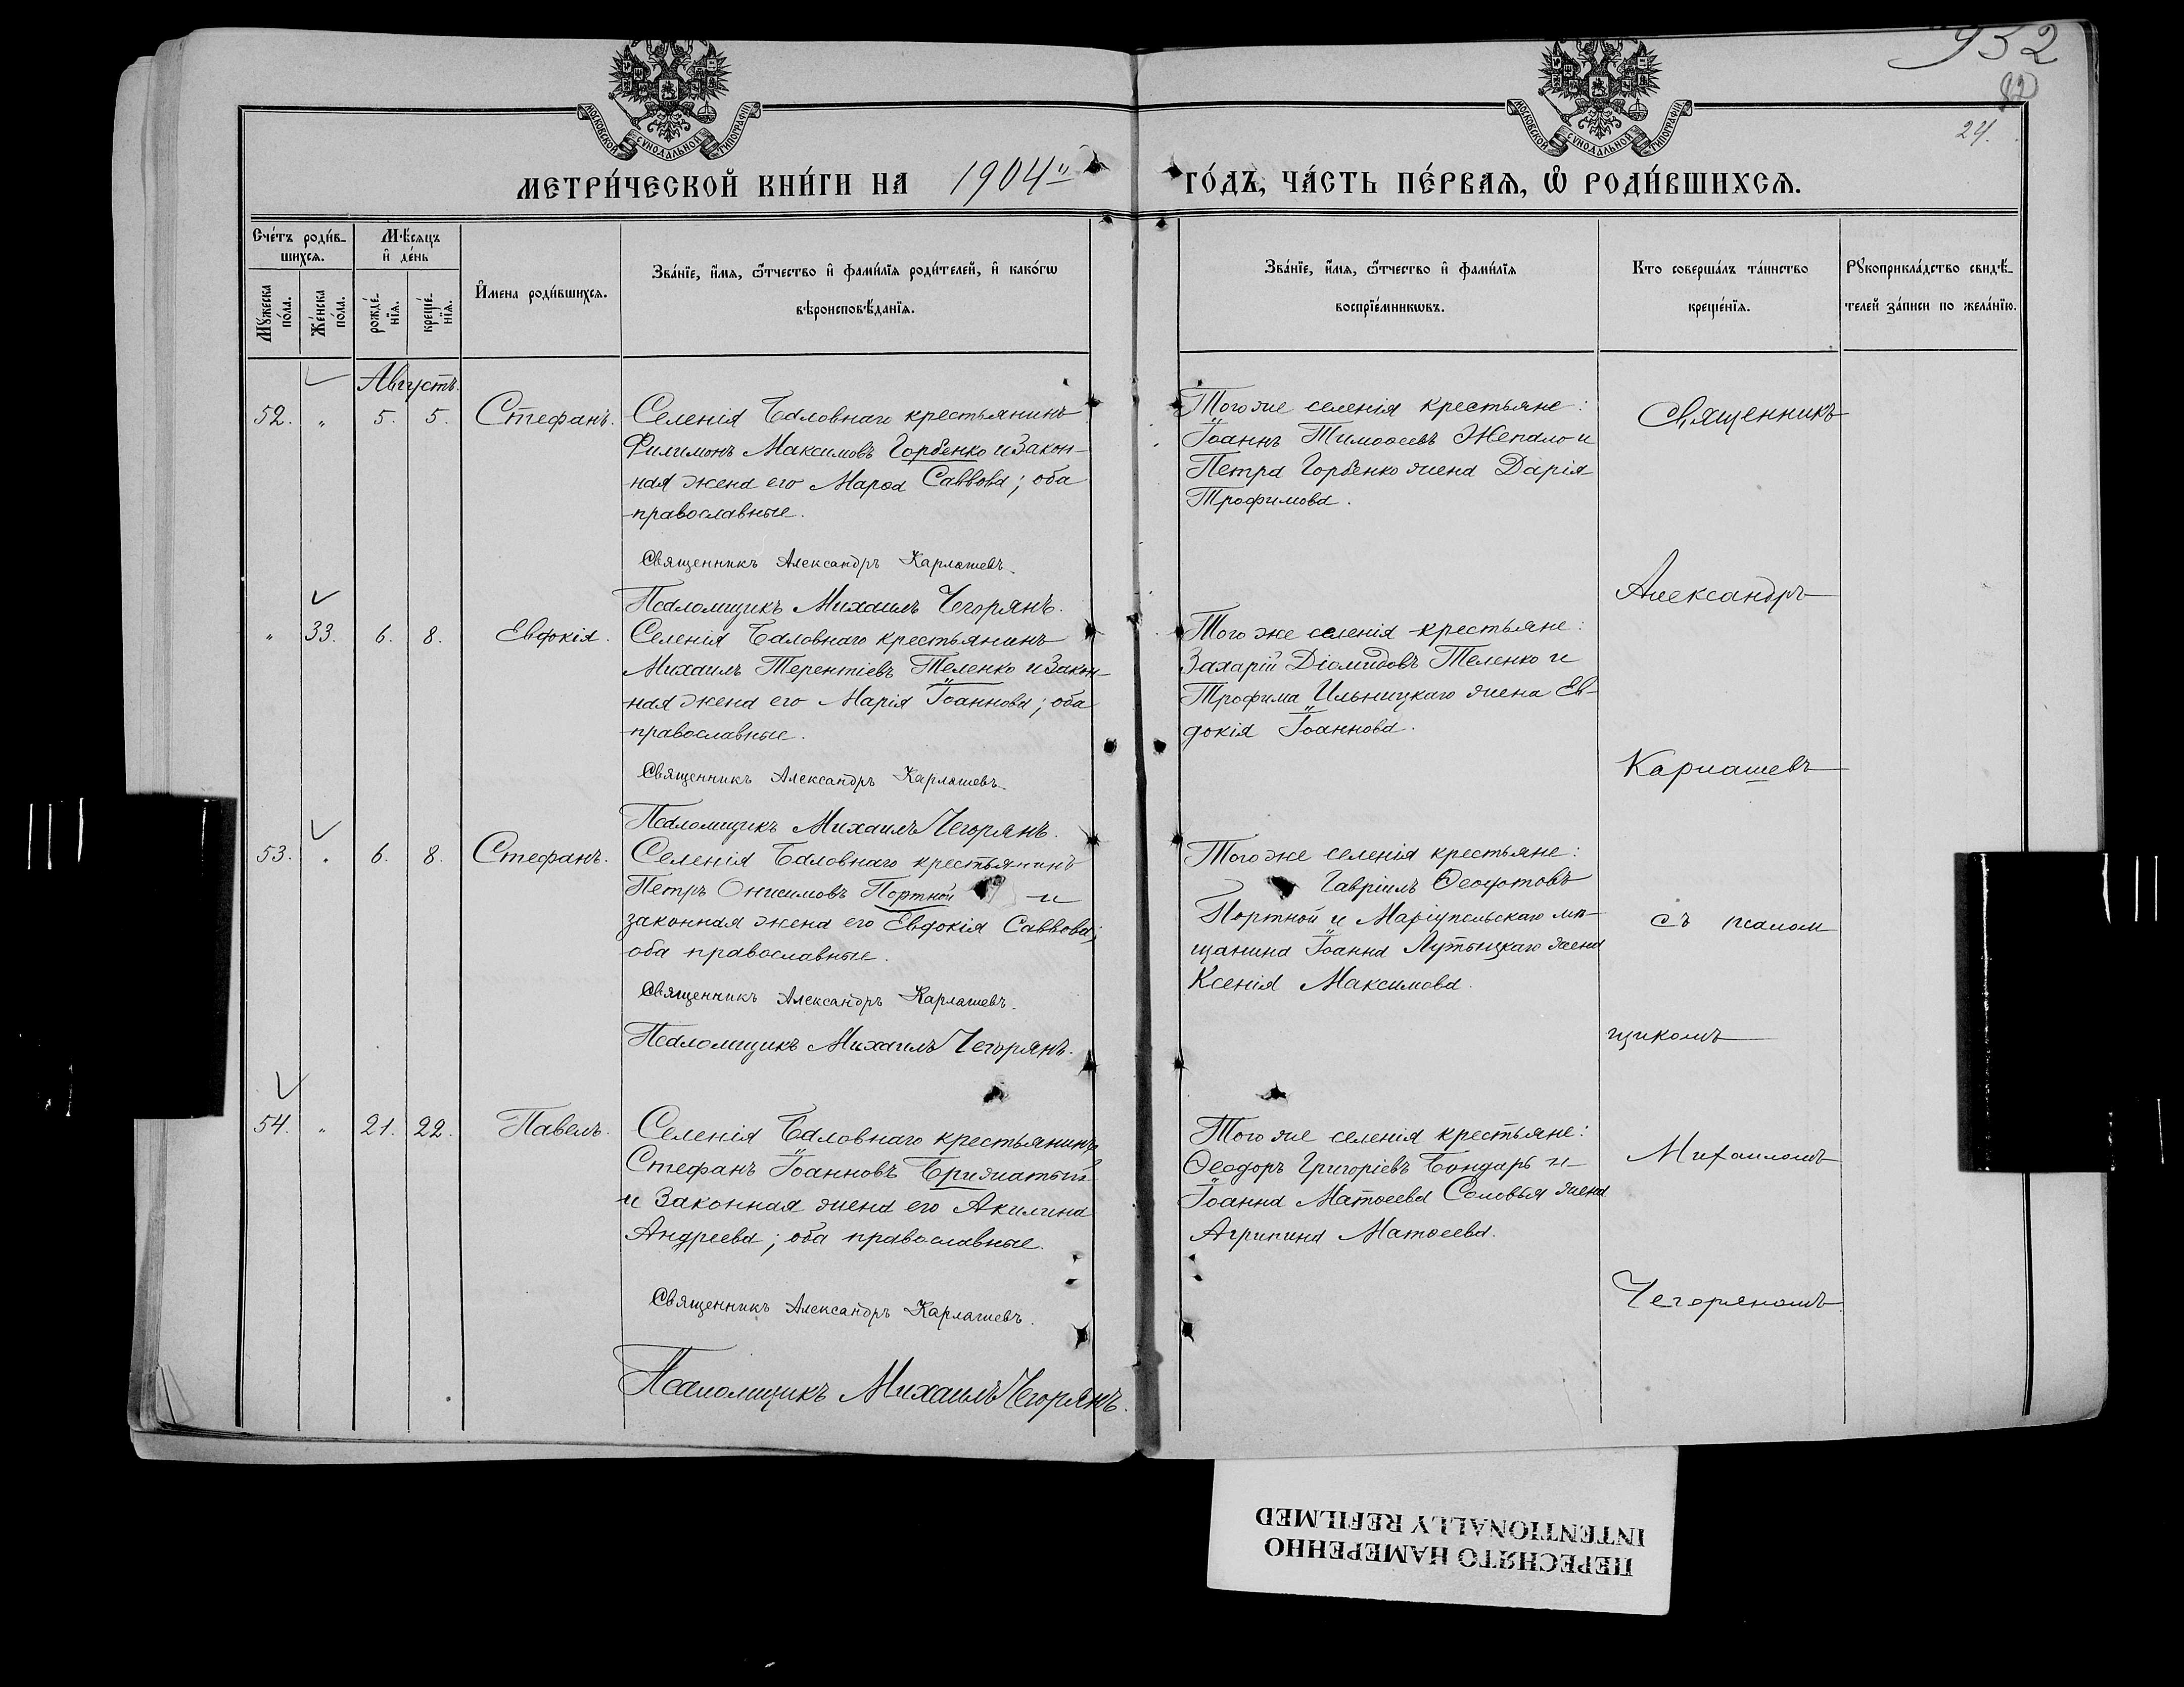 932
82
24.
МОСКОВСКОЙ СѴНОДАЛЬНОЙ ТИПОГРАФІИ
МОСКОВСКОЙ СѴНОДАЛЬНОЙ ТИПОГРАФІИ
МЕТРИ́ЧЕСКОЙ КНИ́ГИ НА 1904
ГО́ДЪ, ЧА́СТЬ ПЕ́РВАЯ, Ѽ РОДИ́ВШИХСЯ.
Сче́тъ роди́в-
шихся.
Мѣ́сяцъ
и҆ де́нь
Му́жеска
по́ла.
Же́нска
по́ла.
рожде́-
нїя.
креще́-
нїя.
И҆мена роди́вшихся.
Зва́нїе, и҆́мя, ѻ҆́тчество и҆ фами́лїя роди́телей, и҆ како́гѡ
вѣроисповѣ́данїя.
Зва́нїе, и҆́мя, ѻ҆́тчество и҆ фами́лїя
воспрїе́мникѡвъ.
Кто соверша́лъ та́инство
креще́нїя.
Рукоприкла́дство свидѣ́-
телей за́писи по жела́нїю.
Августъ.
52. „ 5. 5. Стефанъ.
Селенія Баловнаго крестьянинъ
Филимонъ Максимовъ Горбенко и закон-
ная жена его Марѳа Саввова; оба
православные.
Священникъ Александръ Карлашевъ.
Псаломщикъ Михаилъ Чегорянъ.
Того же селенія крестьяне:
Іоаннъ Тимоѳеевъ Жепало и
Петра Горбенко жена Дарія
Трофимова.
Священникъ
Александръ
„ 33. 6. 8. Евдокія.
Селенія Баловнаго крестьянинъ
Михаилъ Терентіевъ Теленко и закон-
ная жена его Марія Іоаннова; оба
православные.
Священникъ Александръ Карлашевъ.
Псаломщикъ Михаилъ Чегорянъ.
Того же селенія крестьяне:
Захарій Діомидовъ Теленко и
Трофима Ильницкаго жена Ев-
докія Іоаннова.
Карлашевъ
53. „ 6. 8. Стефанъ.
Селенія Баловнаго крестьянинъ
Петръ Онисимовъ Портной и
законная жена его Евдокія Саввова;
оба православные.
Священникъ Александръ Карлашевъ.
Псаломщикъ Михаилъ Чегорянъ.
Того же селенія крестьяне:
Гавріилъ Ѳеофотовъ
Портной и Маріупольскаго мѣ-
щанина Іоанна жена
Ксенія Максимова.
съ псалом
щикомъ
54. „ 21. 22. Павелъ.
Селенія Баловнаго крестьянинъ
Стефанъ Іоанновъ Брижатый
и законная жена его Акилина
Андреева; оба православные.
Священникъ Александръ Карлашевъ.
Псаломщикъ Михаилъ Чегорянъ.
Того же селенія крестьяне:
Ѳеодоръ Григоріевъ Бондарь и
Іоанна Матѳеева Соловья жена
Агрипина Матѳеева.
Михаиломъ
Чегоряномъ
ПЕРЕСНЯТО НАМЕРЕННО
INTENTIONALLY REFILMED